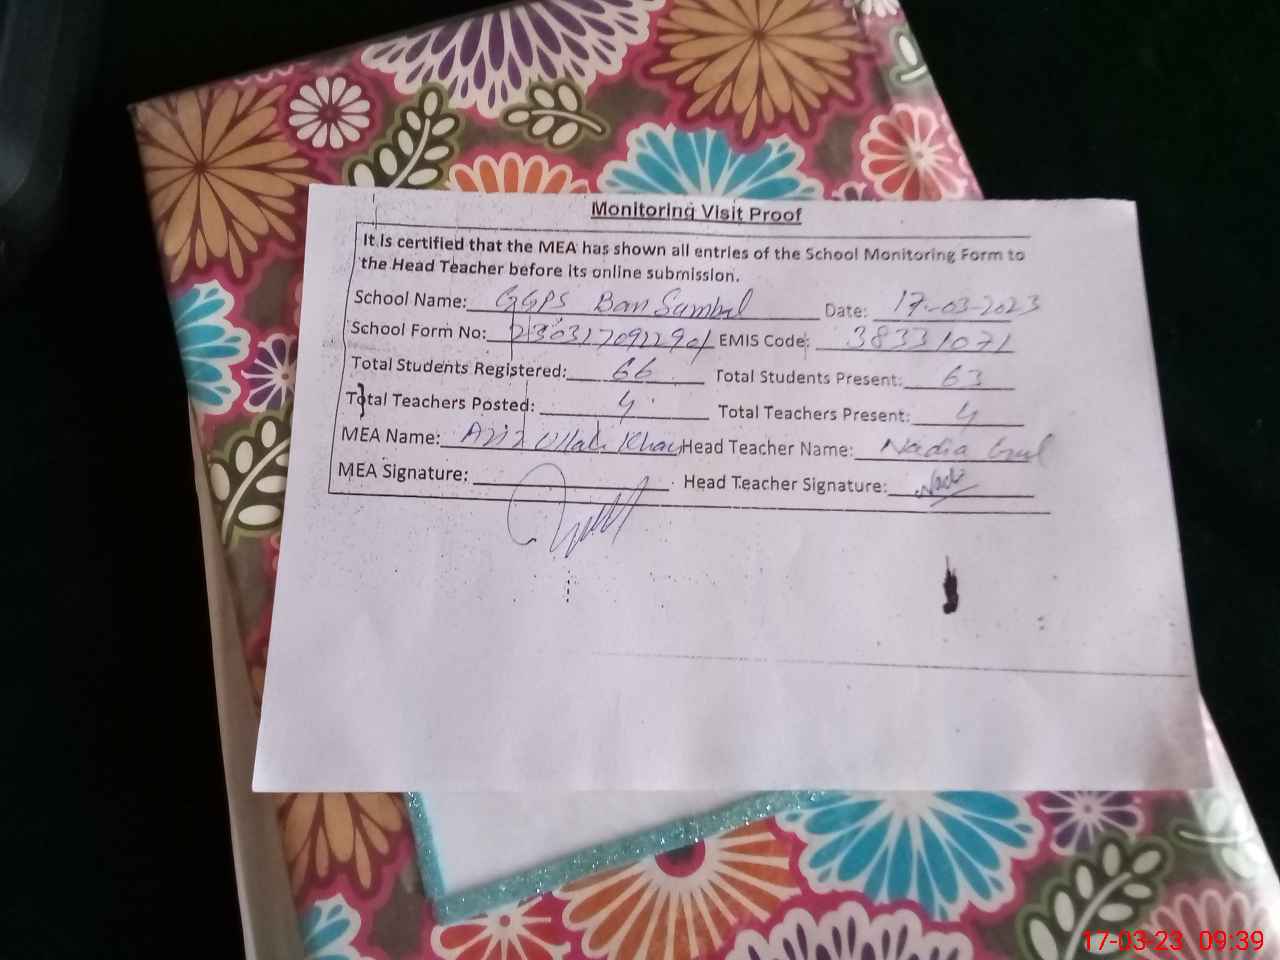 Monitoring Visit Proof
It is certified that the MEA has shown all entries of the School Monitoring Form to
the Head Teacher before its online submission.
School Name: GGPS Ban Sumbal Date: 17-03-2023
School Form No: 2303170912901 EMIS Code: 38331071
Total Students Registered: 66 Total Students Present: 63
Total Teachers Posted: 4 Total Teachers Present: 4
MEA Name: Aziz Ullah Khan Head Teacher Name: Nadia Gul
MEA Signature: Head Teacher Signature:
17-03-23 09:39